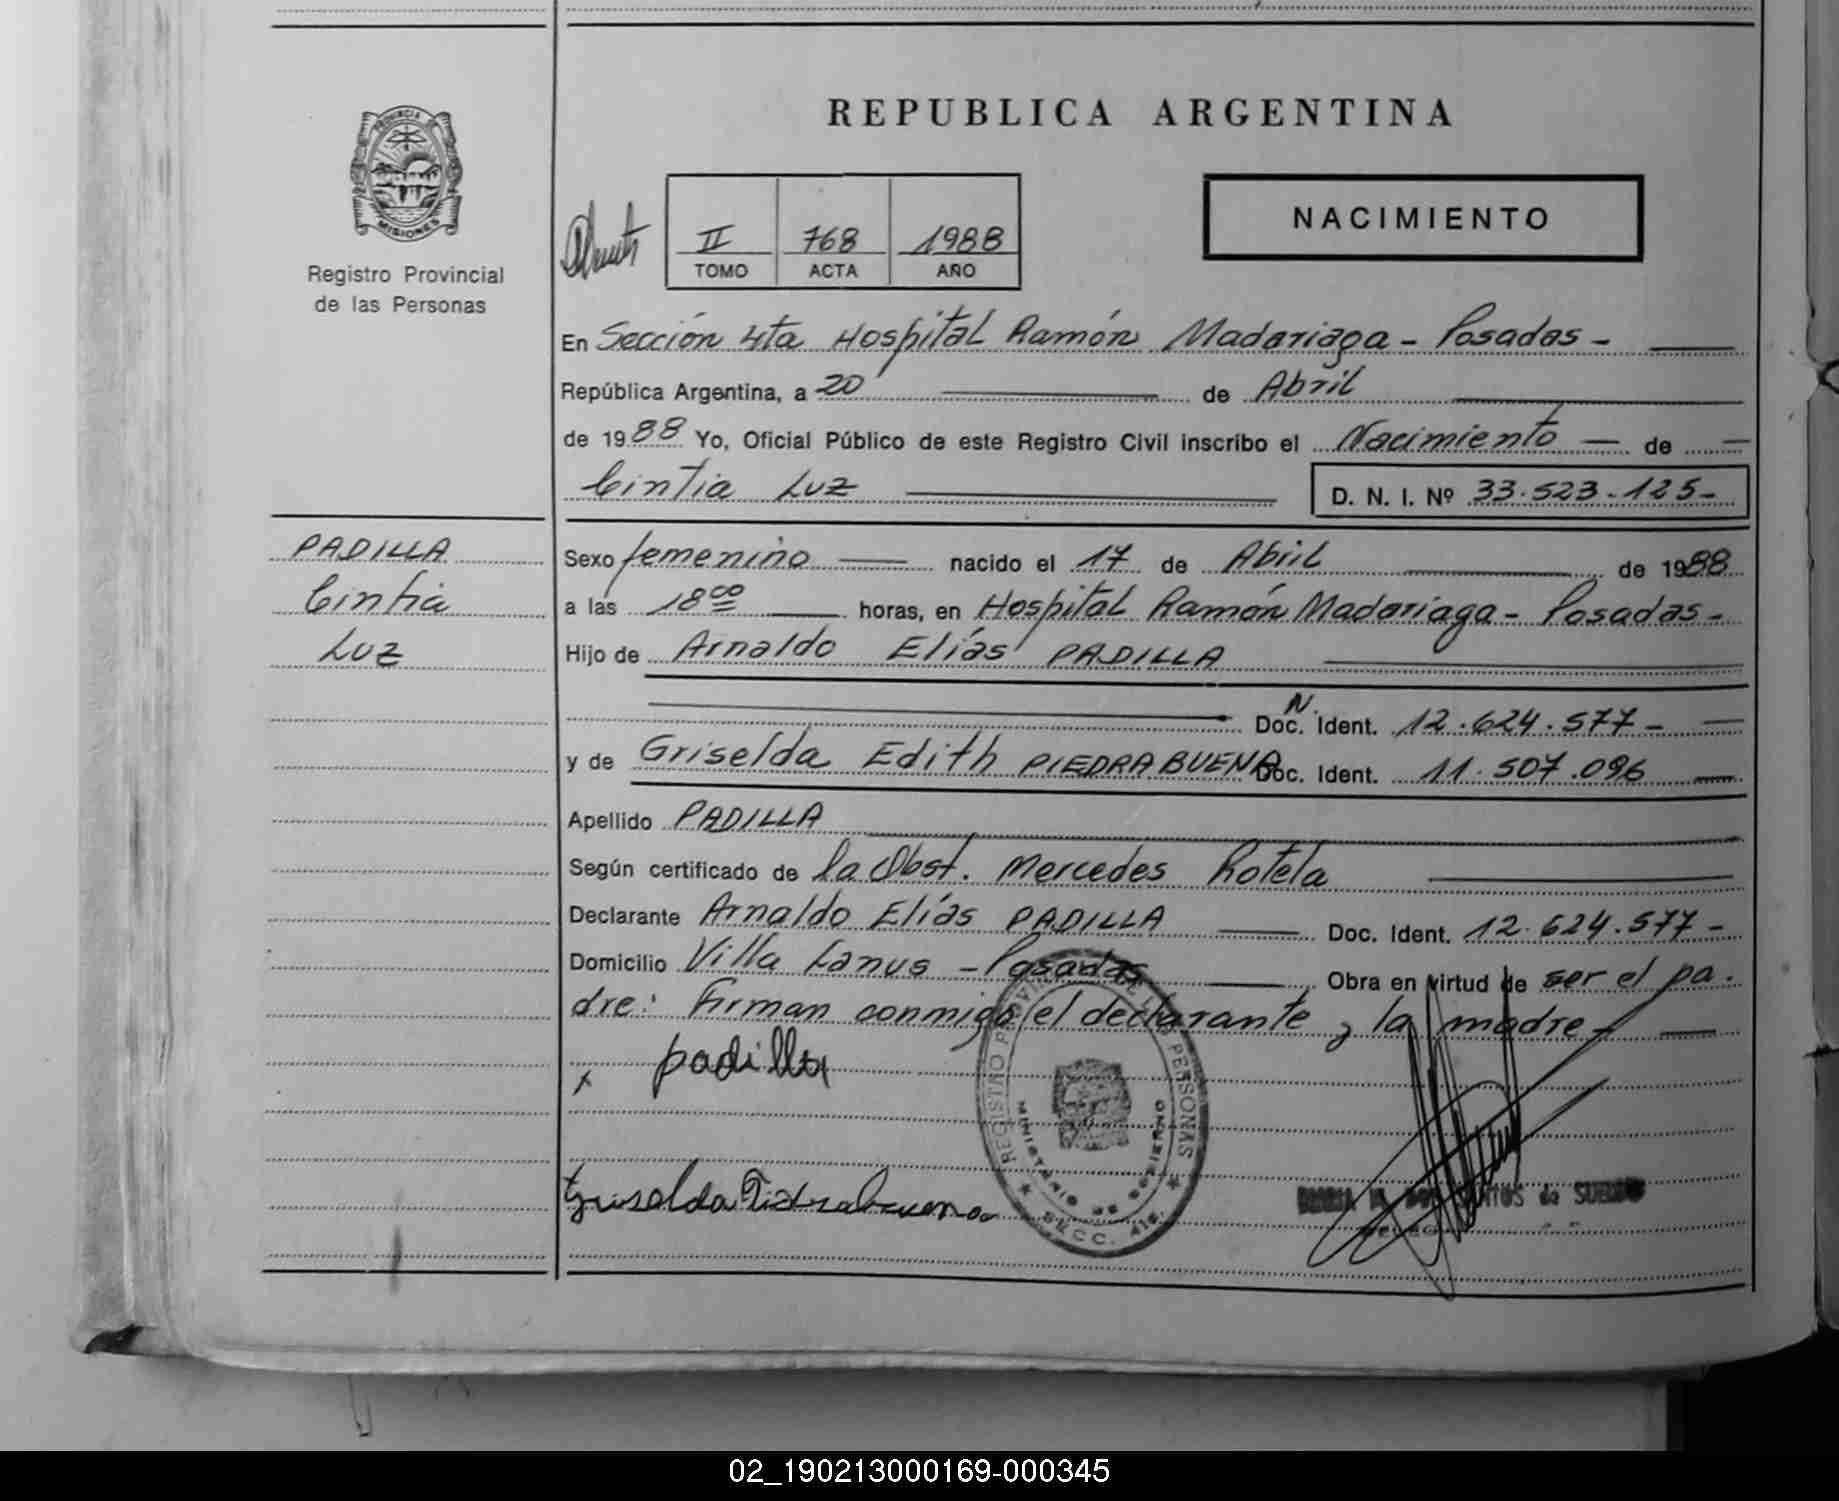 REPUBLICA ARGENTINA
PROVINCIA DE
MISIONES
Registro Provincial
de las Personas
NACIMIENTO
II 768 1988
TOMO ACTA AÑO
En Sección 4ta Hospital Ramón Madariaga - Posadas -
República Argentina, a 20 de Abril
de 1988 Yo, Oficial Público de este Registro Civil inscribo el Nacimiento de
Cintia Luz D. N. I. Nº 33.523.125-
PADILLA
Cintia
Luz
Sexo femenino nacido el 17 de Abril de 1988
a las 18 00 horas, en Hospital Ramón Madariaga - Posadas -
Hijo de Arnaldo Elías PADILLA
N.
Doc. Ident. 12.624.577-
y de Griselda Edith PIEDRABUENA Doc. Ident. 11.507.096
Apellido PADILLA
Según certificado de la Obst. Mercedes Rotela
Declarante Arnaldo Elías PADILLA Doc. Ident. 12.624.577-
Domicilio Villa Lanus - Posadas Obra en virtud de ser el pa.
dre: Firman conmigo el declarante y la madre-
x padilla
Griselda Piedrabuena
REGISTRO PROVINCIAL DE LAS PERSONAS
MINISTERIO DE GOBIERNO
SECC. 4ta.
de SUELDO
02_190213000169-000345